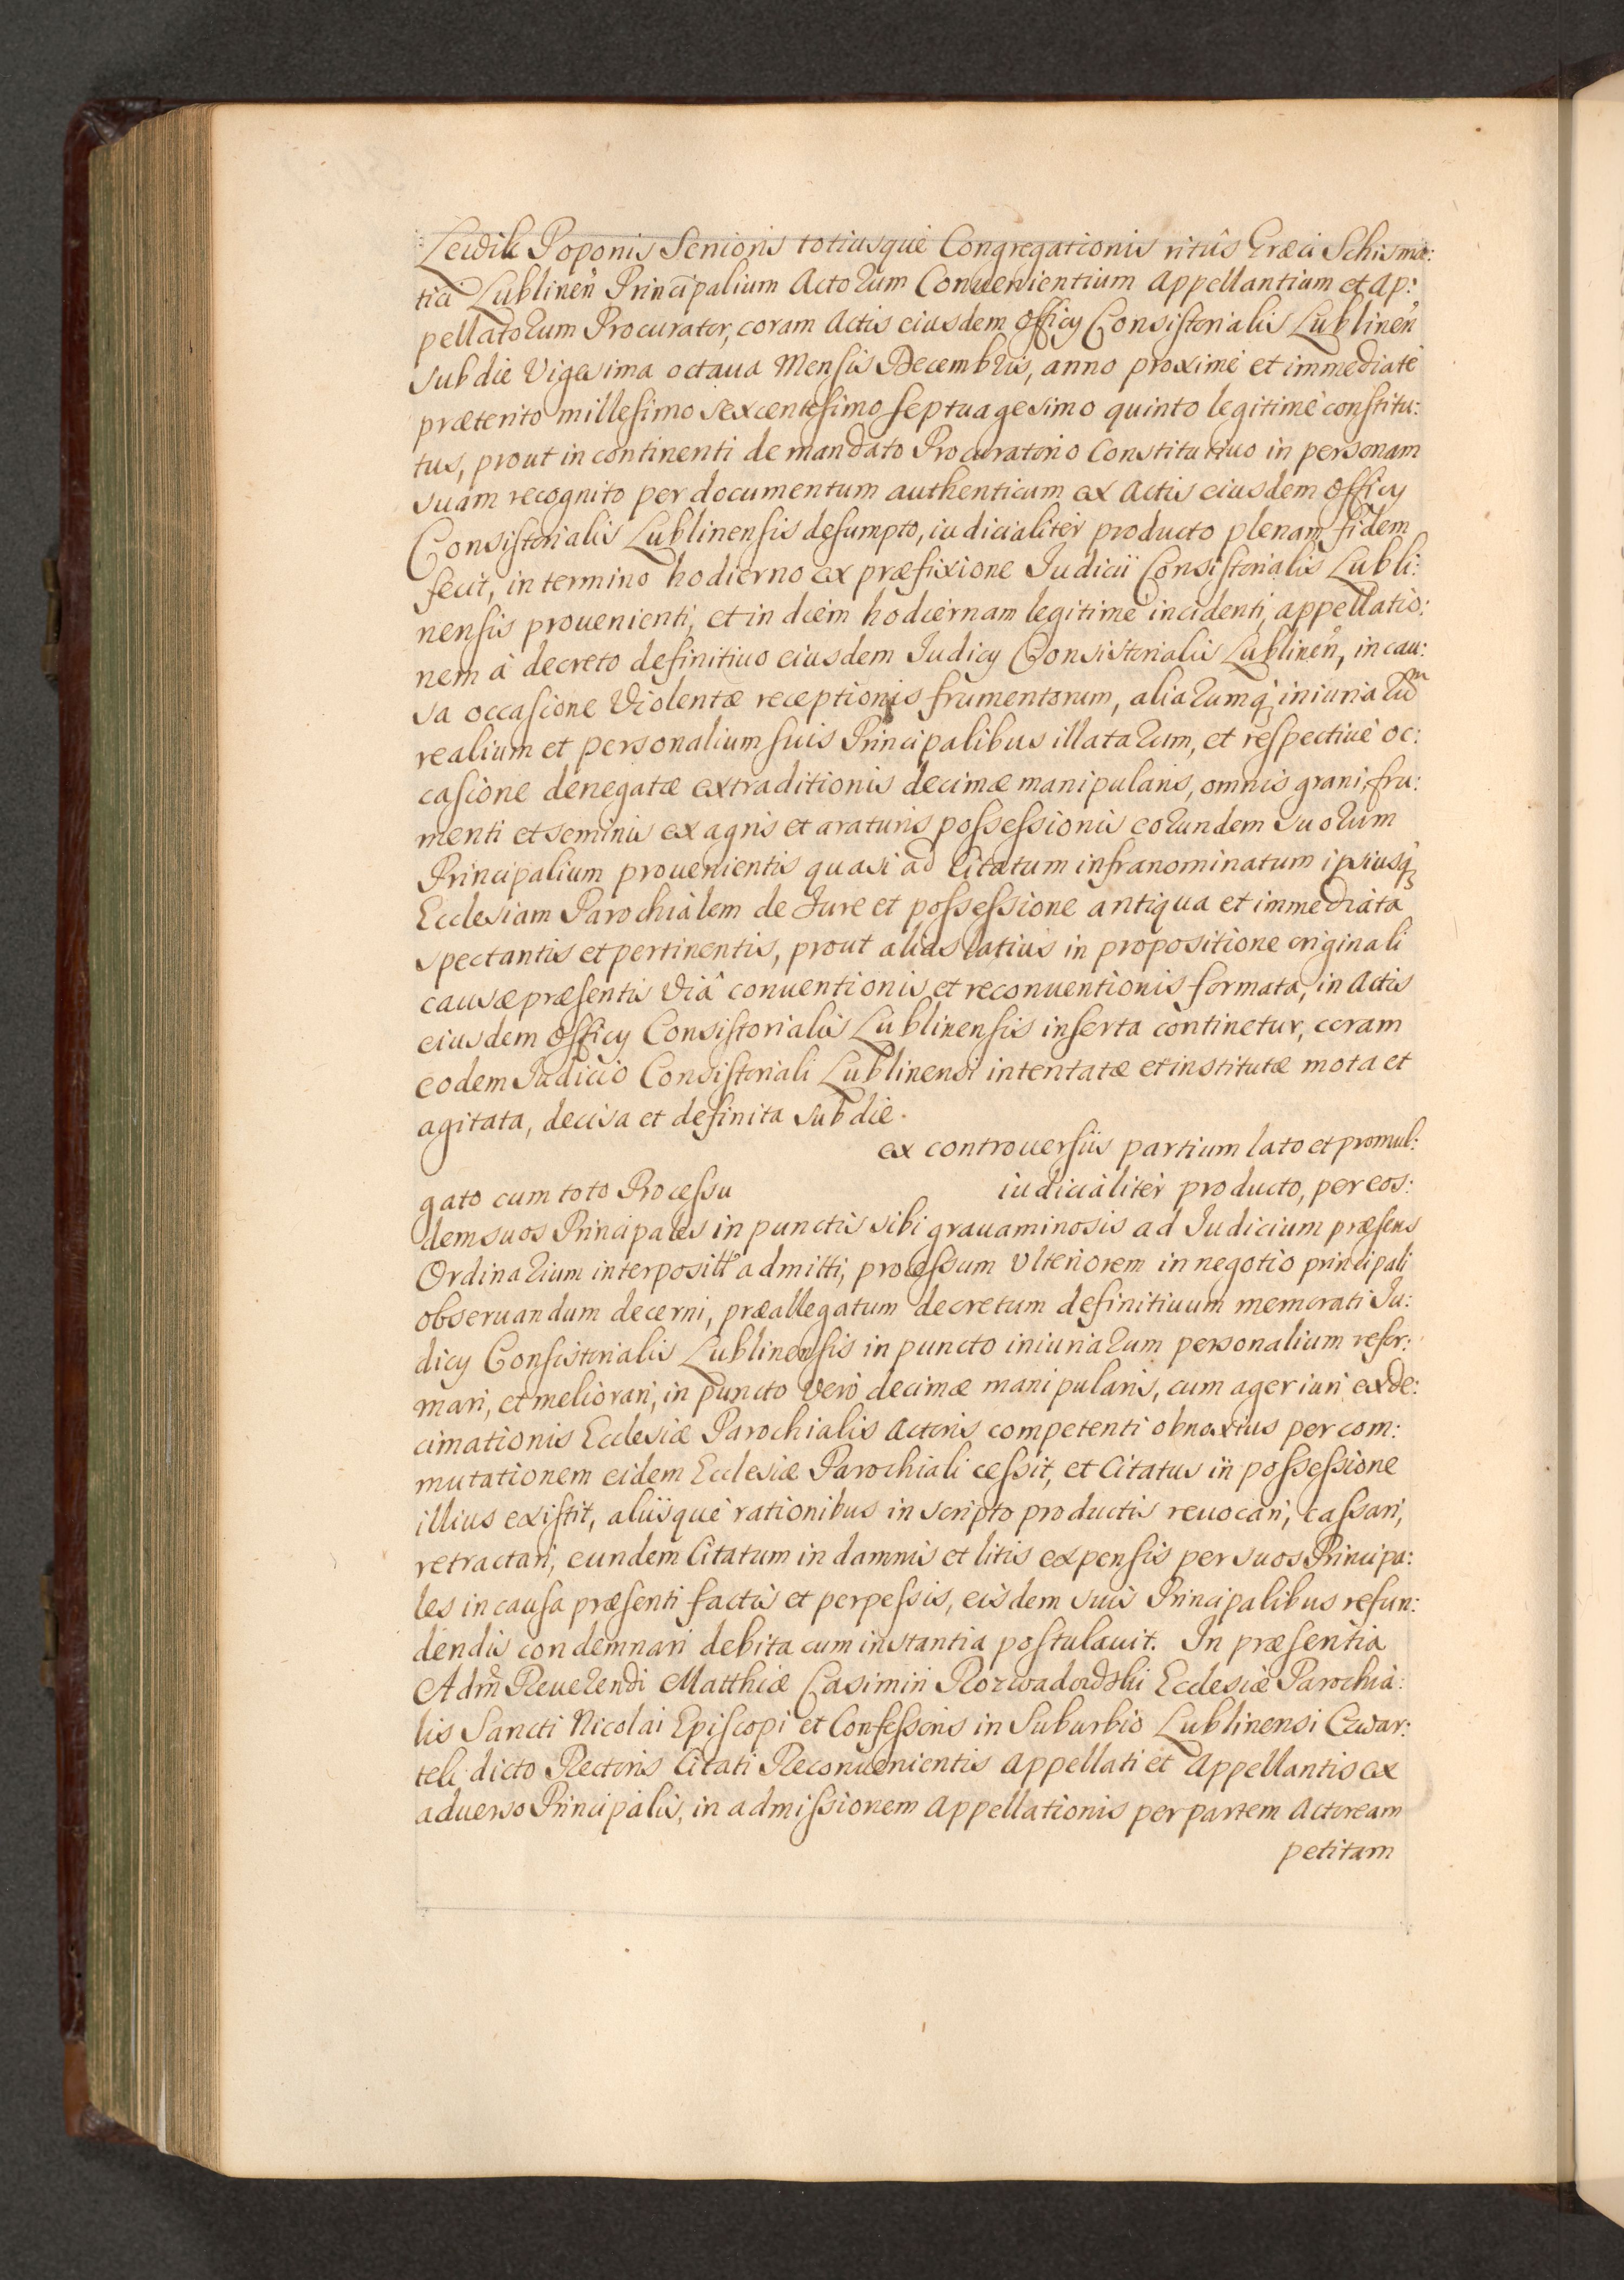 Lewdik Poponis Senioris totiusque Congregationis ritûs Græci Schisma:
tici Lublinen̄ Principalium Actorum Conuenientium Appellantium et Ap:
pellatorum Procurator, coram Actis eiusdem Officy Consistorialis Lublinen̄
sub die Vigesima octaua Mensis Decembris, anno proximè et immediatè
præterito millesimo sexcentesimo septuagesimo quinto legitimè constitu:
tus, prout in continenti de mandato Procuratorio Constitutiuo in personam
suam recognito per documentum authenticum ex Actis eiusdem Officy
Consistorialis Lublinensis desumpto, iudicialitèr producto plenam fidem
fecit, in termino hodierno ex præfixione Iudicii Consistorialis Lubli:
nensis prouenienti, et in diem hodiernam legitimè incidenti, appellatio:
nem à decreto definitiuo eiusdem Iudicy Consistorialis Lublinen̄, in cau:
sa occasione Violentæ receptionis frumentorum, aliarumq̨ iniuriarum
realium et personalium suis Principalibus illatarum, et respectiuè oc:
casione denegatæ extraditionis decimæ manipularis, omnis grani, fru:
menti et seminis ex agris et araturis possessionis eorundem suorum
Principalium prouenientis quasi ad Citatum infranominatum ipsiusq̨
Ecclesiam Parochialem de Iure et possessione antiqua et immediata
spectantis et pertinentis, prout alias latius in propositione originali
causæ præsentis viâ conuentionis et reconuentionis formata, in Actis
eiusdem Officy Consistorialis Lublinensis inserta continetur, coram
eodem Iudicio Consistoriali Lublinensi intentatæ et institutæ mota et
agitata, decisa et definita sub die.
ex controuersiis partium lato et promul:
gato cum toto Processu iudicialitèr producto, per eos:
dem suos Principales in punctis sibi grauaminosis ad Iudicium præsens
Ordinarium interposit̄ admitti, processum Ulteriorem in negotio principali
obseruandum decerni, præallegatum decretum definitiuum memorati Iu:
dicy Consistorialis Lublinensis in puncto iniuriarum personalium refor:
mari, et meliorari, in puncto verò decimæ manipularis, cum ager iuri exde:
cimationis Ecclesiæ Parochialis Actoris competenti obnoxius per com:
mutationem eidem Ecclesiæ Parochiali cessit, et Citatus in possessione
illius existit, aliisque rationibus in scripto productis reuocari, cassari,
retractari, eundem Citatum in damnis et litis expensis per suos Principa:
les in causa præsenti factis et perpessis, eisdem suis Principalibus refun:
dendis condemnari debita cum instantia postulauit. In præsentia
Adm̄ Reuerendi Matthiæ Casimiri Rozwadowski Ecclesiæ Parochia:
lis Sancti Nicolai Episcopi et Confessoris in Suburbio Lublinensi Czwar:
tek dicto Rectoris Citati Reconuenientis Appellati et Appellantis ex
aduerso Principalis, in admissionem Appellationis per partem Actoream
petitam